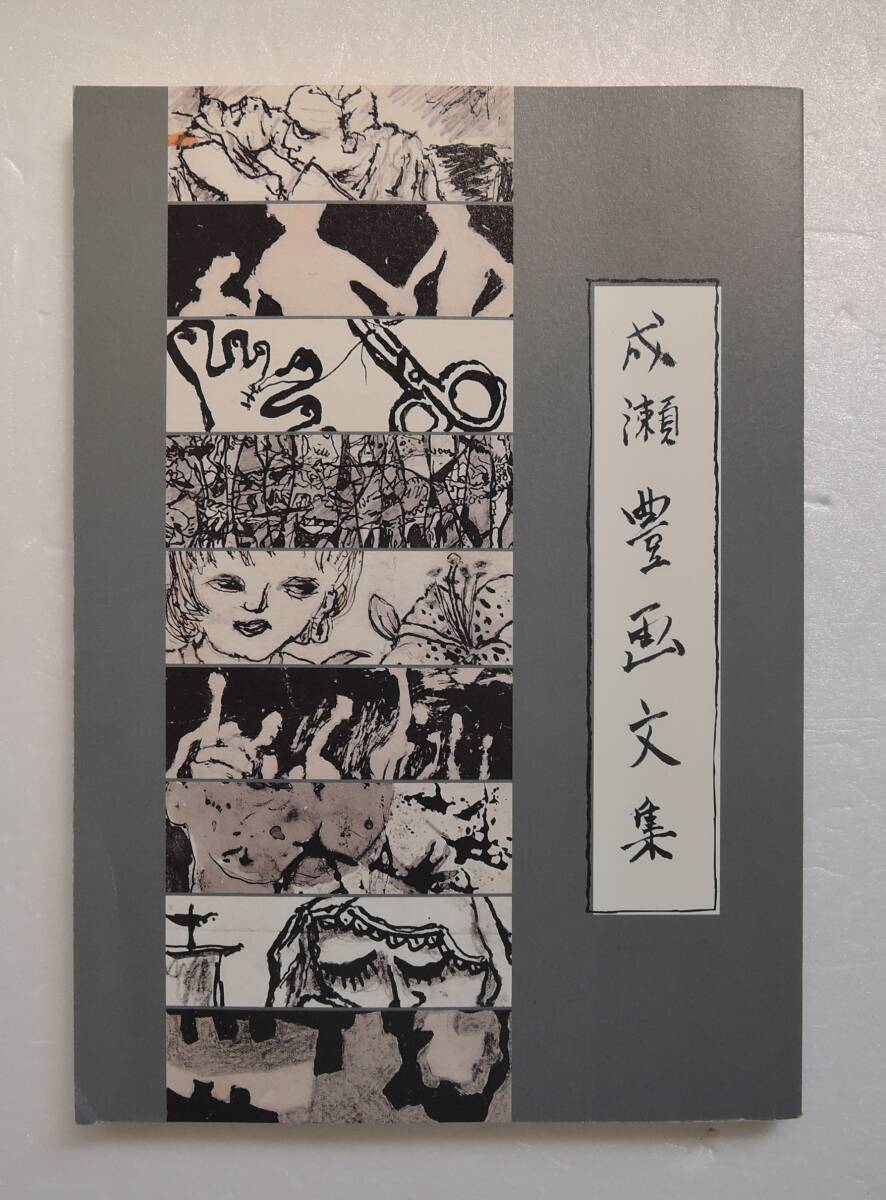 成瀬豊画文集